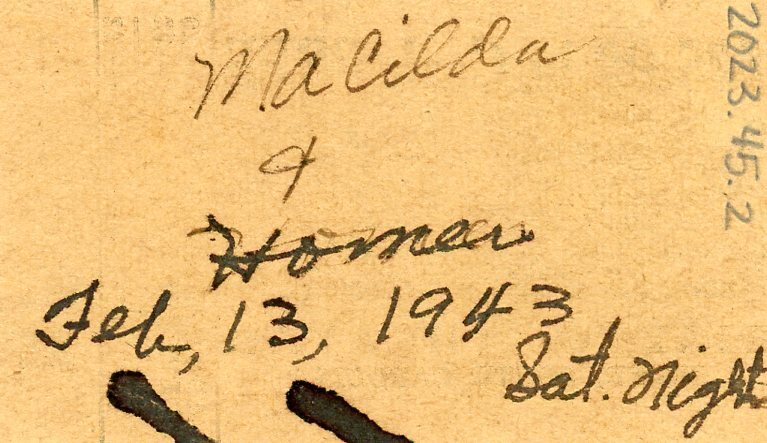 Macilda
&
Homer
Feb, 13, 1943
Sat. Night
2023.45.2